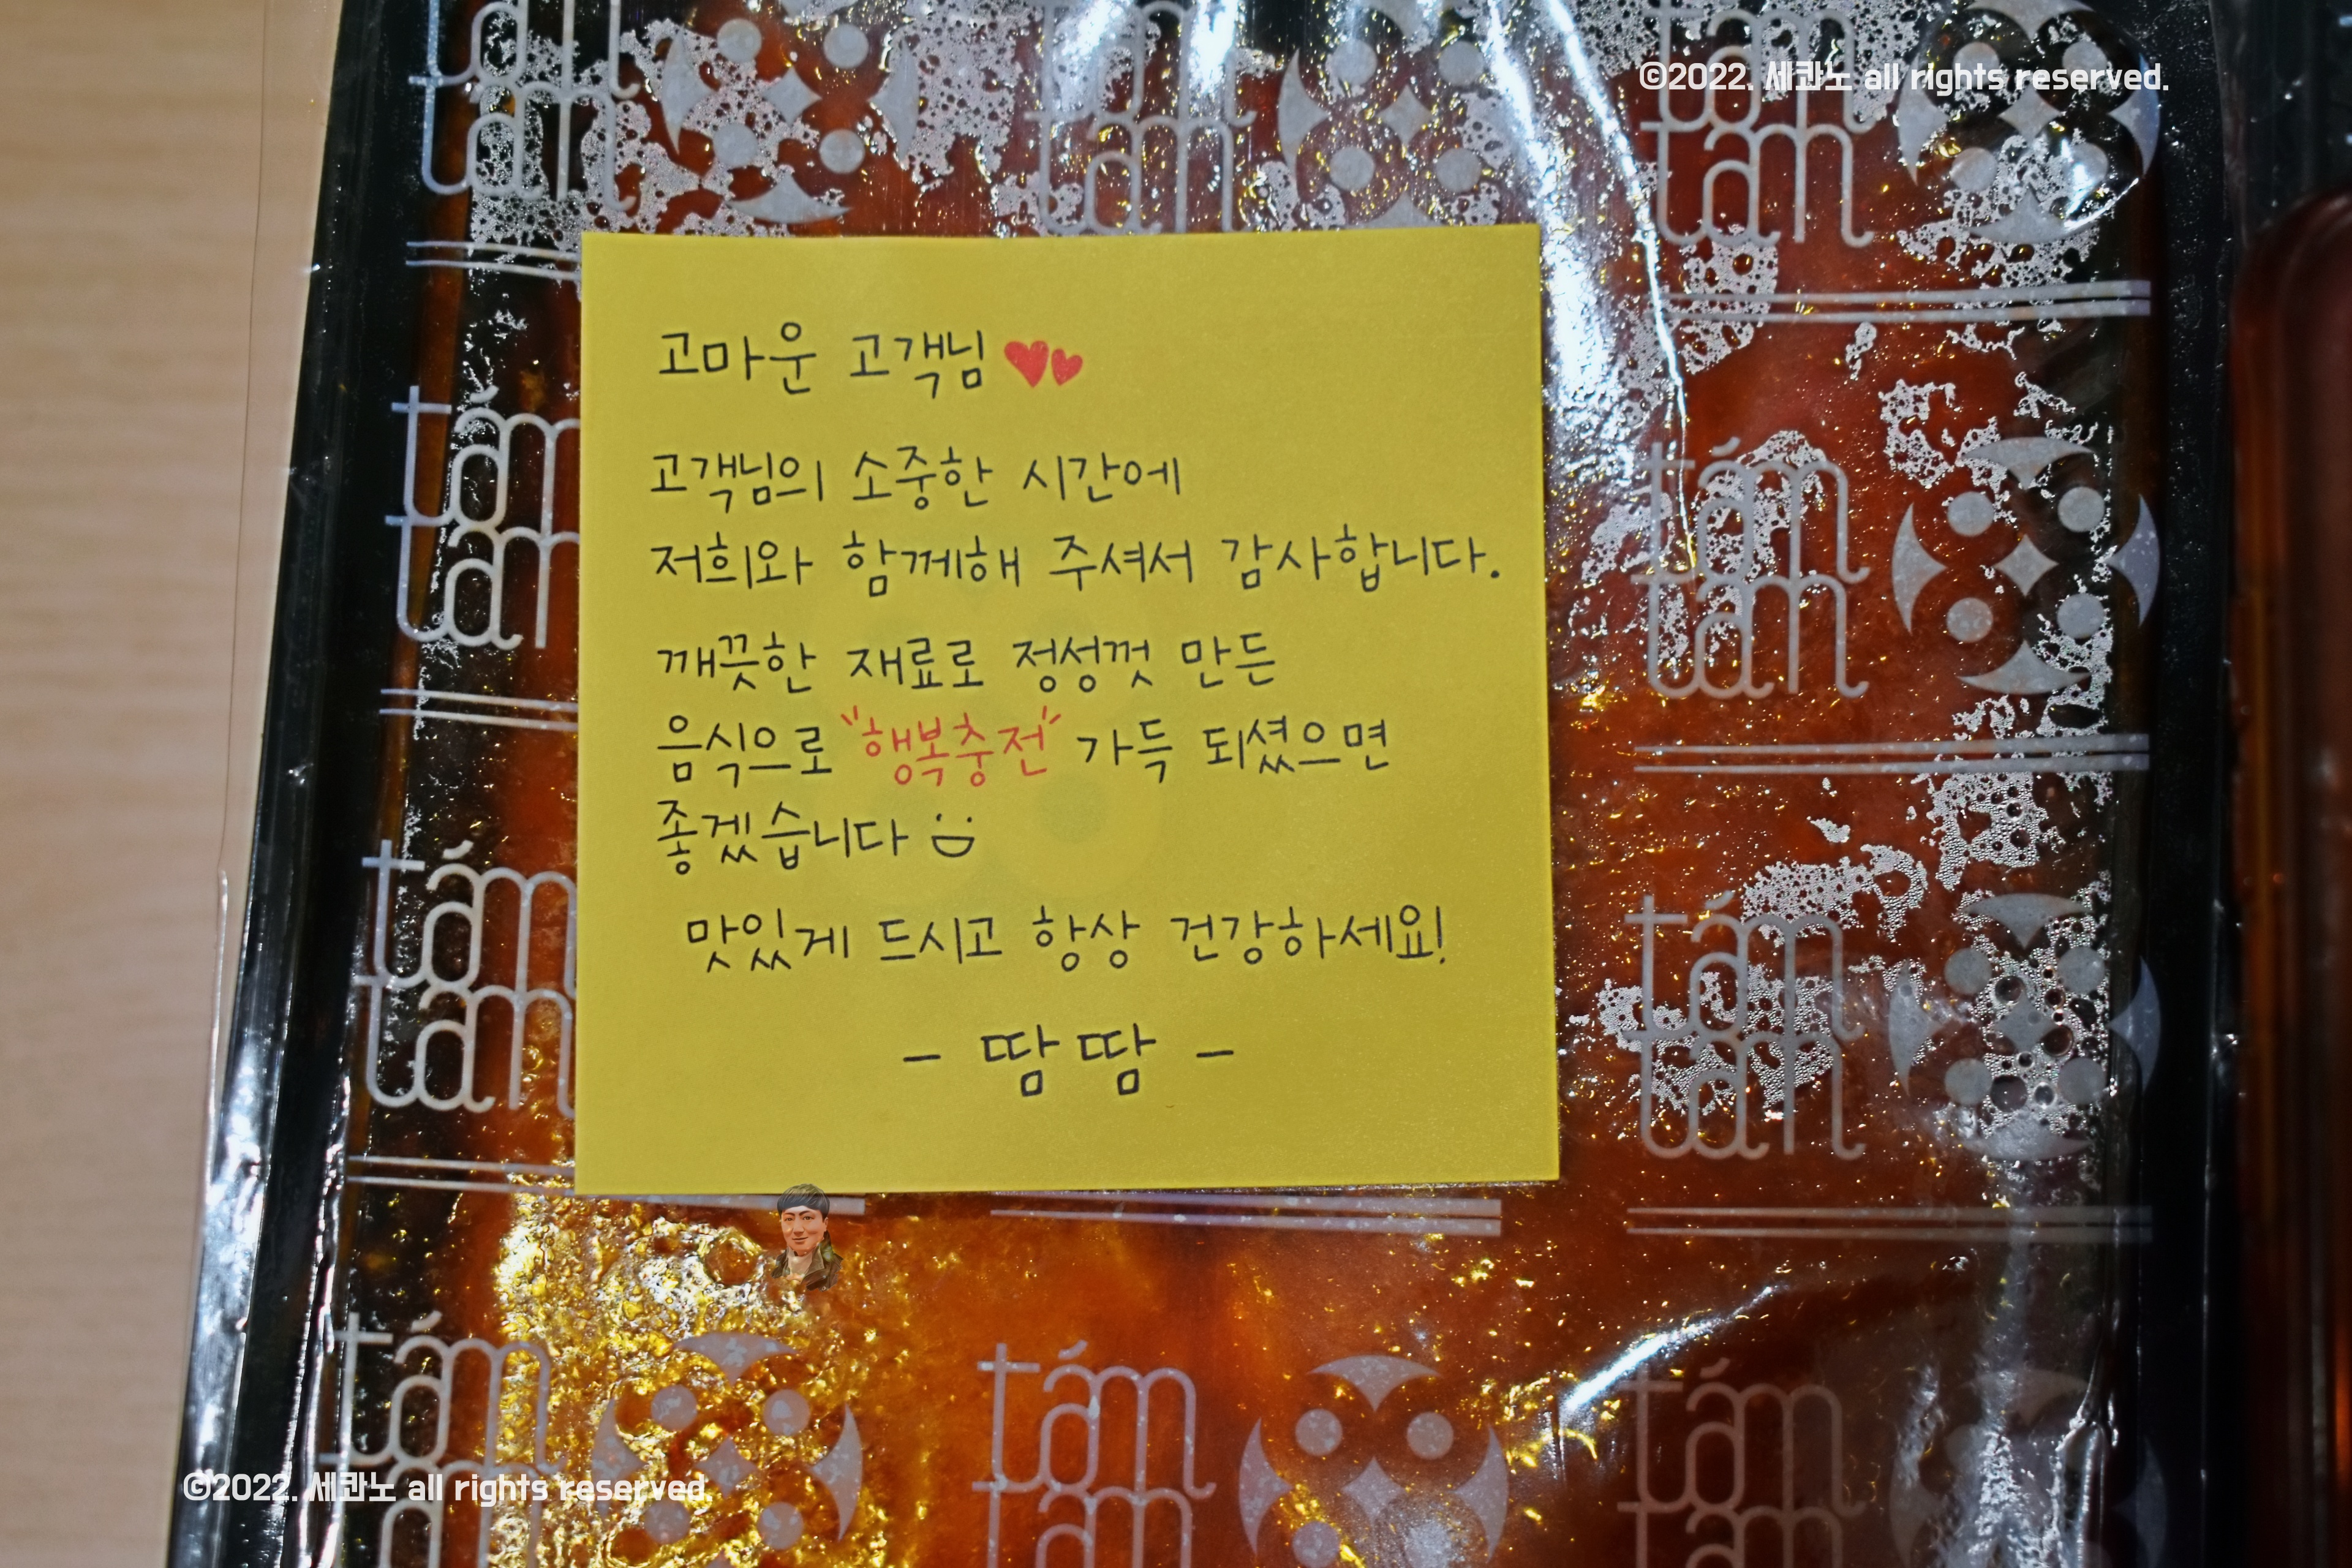 ©2022. 세콴노 all rights reserved.
고마운 고객님
고객님의 소중한 시간에
저희와 함께해 주셔서 감사합니다.
깨끗한 재료로 정성껏 만든
음식으로 "행복충전" 가득 되셨으면
좋겠습니다
맛있게 드시고 항상 건강하세요!
- 땀땀 -
tám
tám
tám
tám
tám
tám
tám
tám
tám
tám
tám
tám
©2022. 세콴노 all rights reserved.